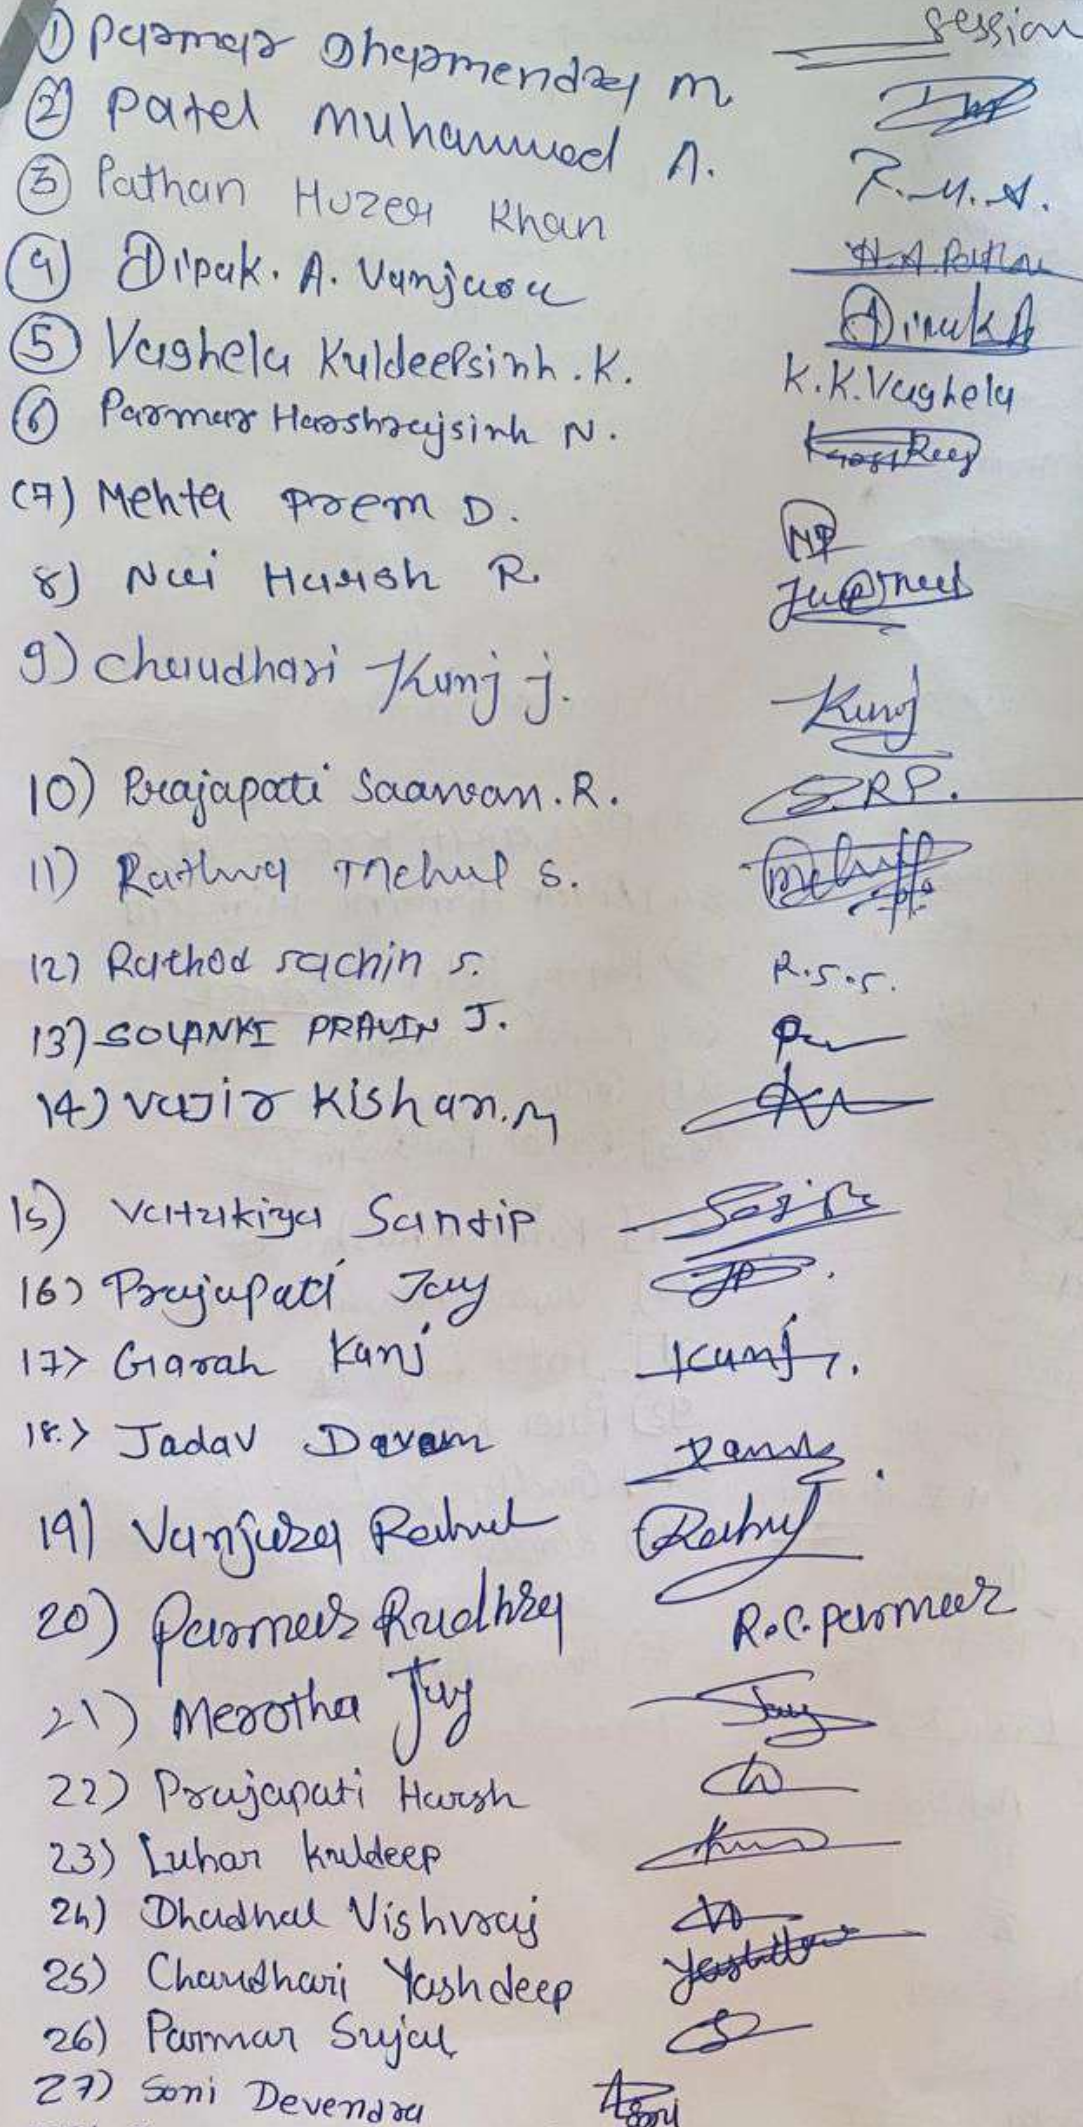 session
1) Parmar Dharmendra M.
2) Patel Muhammad A.
3) Pathan Huzer Khan
P.M.A.
4) Dipak. A. Vanjara
H.A.Pathan
5) Vaghela Kuldeepsinh. K.
Dipak A
6) Parmar Harshrajsinh N.
K.K.Vaghela
(7) Mehta Prem D.
8) Nai Harsh R.
9) Chaudhari Kunj j.
Kunj
10) Prajapati Saawan. R.
S.R.P.
11) Rathva Mehul S.
12) Rathod sachin s.
R.S.S.
13) SOLANKI PRAVIN J.
14) Vajir Kishan. M
15) Vatukiya Sandip
16) Prajapati Jay
JP.
17> Garah Kunj
Kunj
18.> Jadav
19) Vanjara Rahul
Rahul
20) Parmar Rudhra
R.C.Parmar
21) Merotha Jay
Jay
22) Prajapati Harsh
23) Luhar kuldeep
24) Dhadhal Vishvraj
25) Chaudhari Yashdeep
26) Parmar Sujal
27) Soni Devendra